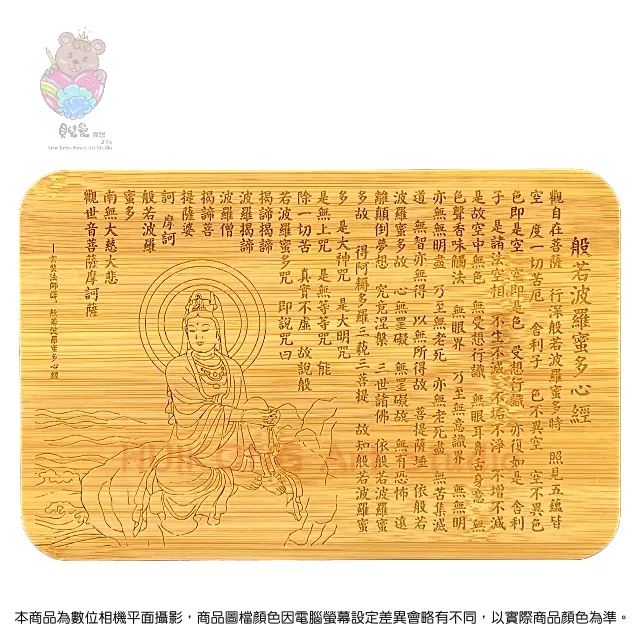 般若波羅蜜多心經
觀自在菩薩 行深般若波羅蜜多時 照見五蘊皆
空 度一切苦厄 舍利子 色不異空 空不異色
色即是空 空即是色 受想行識 亦復如是 舍利
子 是諸法空相 不生不滅 不垢不淨 不增不減
是故空中無色 無受想行識 無眼耳鼻舌身意 無
色聲香味觸法 無眼界 乃至無意識界 無無明
亦無無明盡 乃至無老死 亦無老死盡 無苦集滅
道 無智亦無得 以無所得故 菩提薩埵 依般若
波羅蜜多故 心無罣礙 無罣礙故 無有恐怖 遠
離顛倒夢想 究竟涅槃 三世諸佛 依般若波羅蜜
多故 得阿耨多羅三藐三菩提 故知般若波羅蜜
多 是大神咒 是大明咒
是無上咒 是無等等咒 能
除一切苦 真實不虛 故說般
若波羅蜜多咒 即說咒曰
揭諦揭諦
波羅揭諦
波羅僧
揭諦菩
提薩婆
訶 摩訶
般若波羅
蜜多
南無大慈大悲
觀世音菩薩摩訶薩
HUIKONG
本商品為數位相機平面攝影，商品圖檔顏色因電腦螢幕設定差異會略有不同，以實際商品顏色為準。